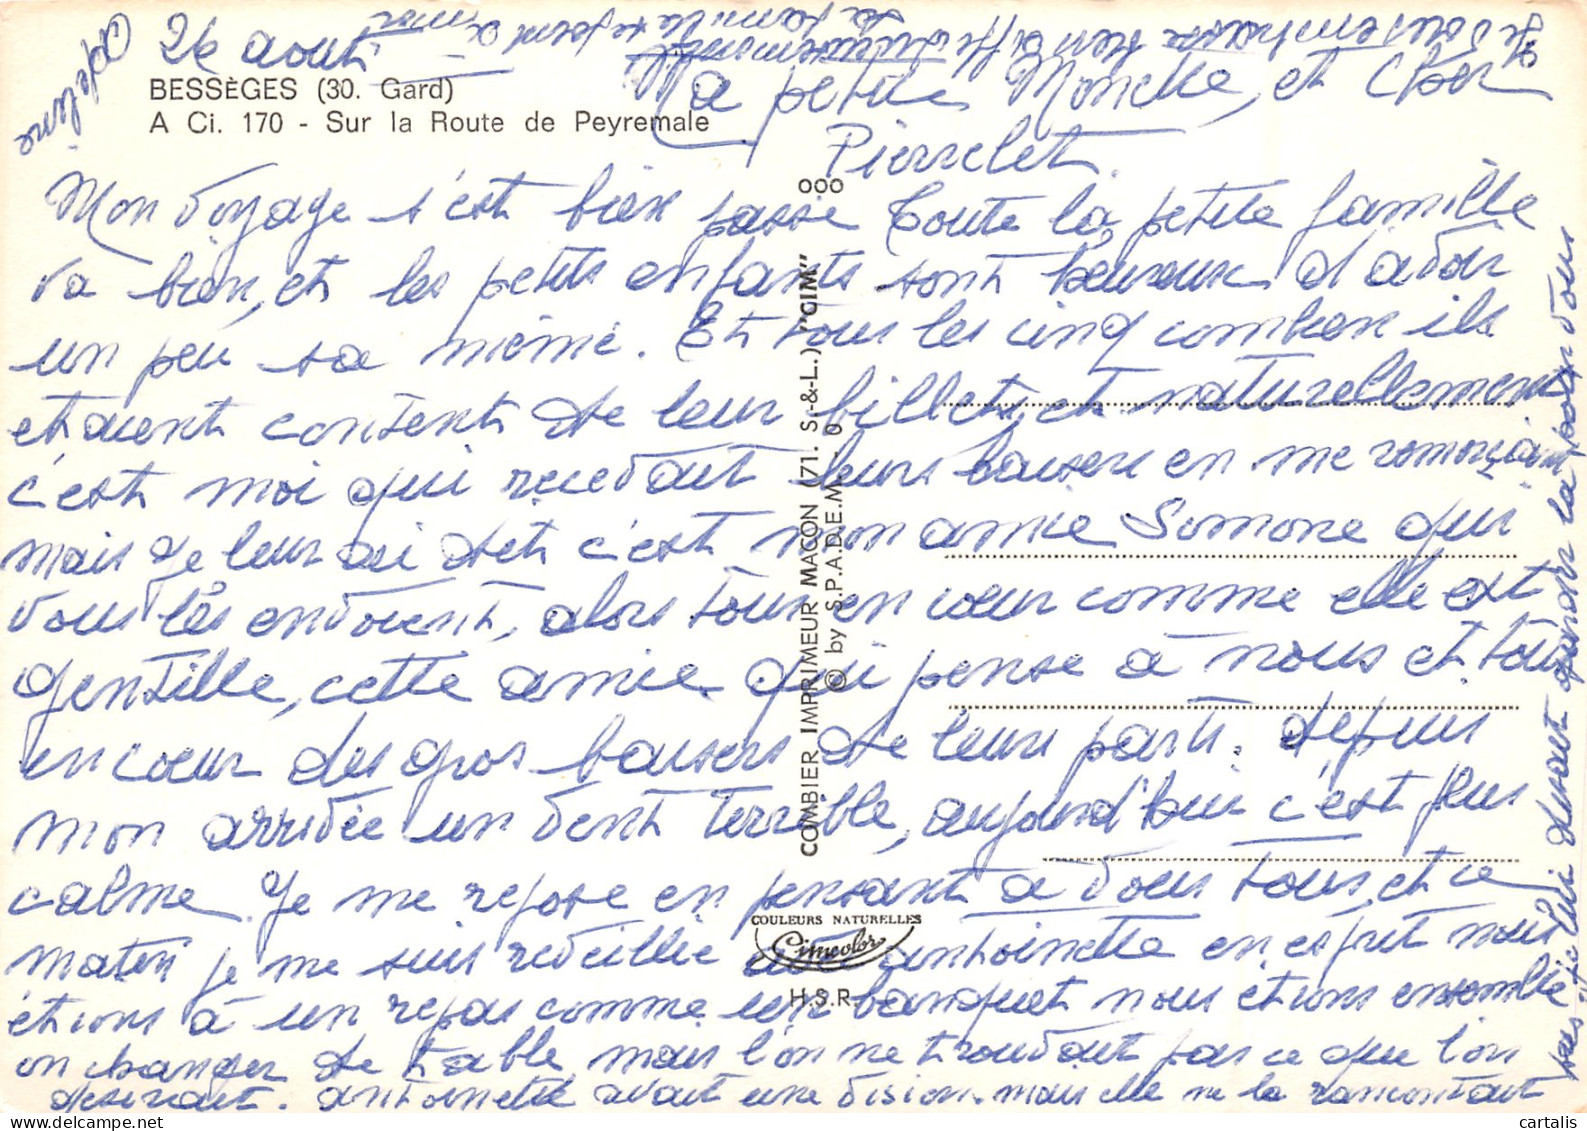 26 aout
BESSÈGES (30. Gard)
A Ci. 170 - Sur la Route de Peyremale
Ma petite Monette, et cher
Pierrelet.
Mon voyage s'est bien passé toute la petite famille
va bien, et les petits enfants sont heureux d'avoir
un peu sa mémé. Et tous les cinq combien ils
etaient contents de leur billet, et naturellement
c'est moi qui recevait leurs baisers en me
mais je leur ai dit c'est mon amie Simone qui
vous les envoient, alors tous en coeur comme elle est
gentille, cette amie qui pense à nous et tous
en coeur des gros baisers de leur part. depuis
mon arrivée un vent terrible, aujourd'hui c'est plus
calme. Je me repose en pensant a vous tous, et ce
matin je me suis reveillée antoinette en esprit nous
étions à un repas comme un banquet nous etions ensemble
on changer de table, mais l'on ne trouvait pas ce que l'on
desirait. antoinette avait une vision, mais elle ne la rencontrait
pas, lui disait la pour vous
Je vous embrasse bien affectueusement
la famille se joint a moi
COMBIER IMPRIMEUR MACON (71. S.-&-L.) "CIM"
© by S.P.A.DE.M. 0
COULEURS NATURELLES
Cimcolor
H.S.R.
cartalis